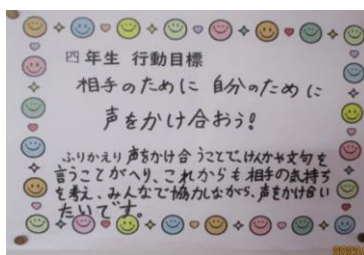 四年生 行動目標
相手のために 自分のために
声をかけ合おう!
ふりかえり 声をかけ合うことで、けんかや文句を
言うことがへり、これからも相手の気持ち
を考え、みんなで協力しながら、声をかけ合い
たいです。